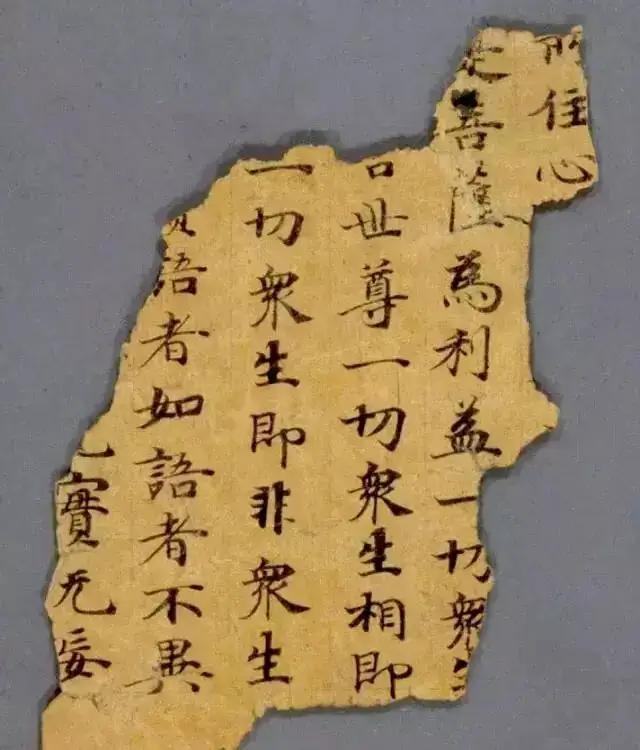 所住心
是菩薩為利益一切衆生
言世尊一切衆生相即
一切衆生即非衆生
語者如語者不異
實无妄